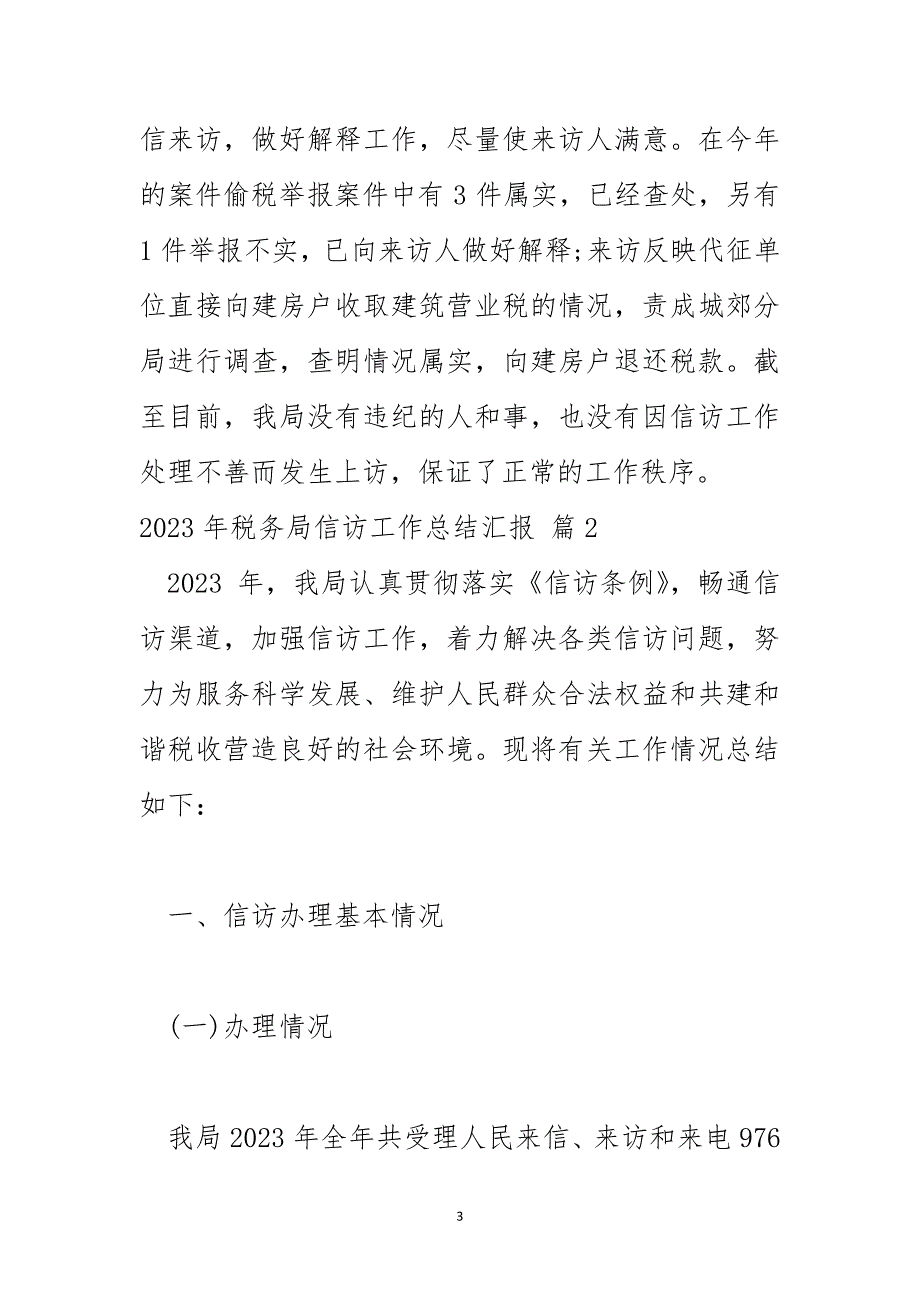 信来访，做好解释工作，尽量使来访人满意。在今年
的案件偷税举报案件中有 3 件属实，已经查处，另有
1 件举报不实，已向来访人做好解释;来访反映代征单
位直接向建房户收取建筑营业税的情况，责成城郊分
局进行调查，查明情况属实，向建房户退还税款。截
至目前，我局没有违纪的人和事，也没有因信访工作
处理不善而发生上访，保证了正常的工作秩序。
2023 年税务局信访工作总结汇报 篇 2
2023 年，我局认真贯彻落实《信访条例》，畅通信
访渠道，加强信访工作，着力解决各类信访问题，努
力为服务科学发展、维护人民群众合法权益和共建和
谐税收营造良好的社会环境。现将有关工作情况总结
如下：
一、信访办理基本情况
(一)办理情况
我局 2023 年全年共受理人民来信、来访和来电 976
3